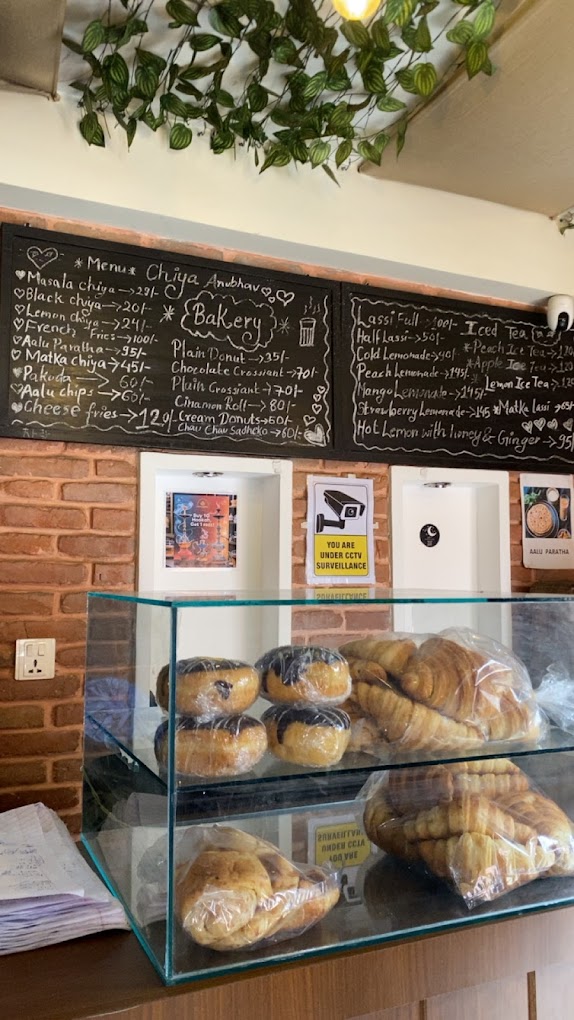 *Menu*
Chiya Anubhav
Masala chiya → 29/-
Black chiya → 20/-
Lemon chiya → 24/-
French Fries → 100/-
Aalu Paratha → 95/-
Matka chiya → 45/-
Pakuda → 60/-
Aalu chips → 60/-
Cheese fries → 129/-
* Bakery *
Plain Donut → 35/-
Chocolate Crossiant → 70/-
Plain Crossiant → 70/-
Cinamon Roll → 80/-
Cream Donuts → 60/-
Chau Chau Sadheko → 60/-
Lassi Full → 100/-
Half Lassi → 50/-
Cold Lemonade → 40/-
Peach Lemonade → 145/-
Mango Lemonade → 145/-
Strawberry Lemonade → 145
Hot Lemon with honey & Ginger → 95/-
Iced Tea
*Peach Ice Tea → 120
*Apple Ice Tea → 120
Lemon Ice Tea → 120
*Matka lassi → 65/-
YOU ARE
UNDER CCTV
SURVEILLANCE
AALU PARATHA